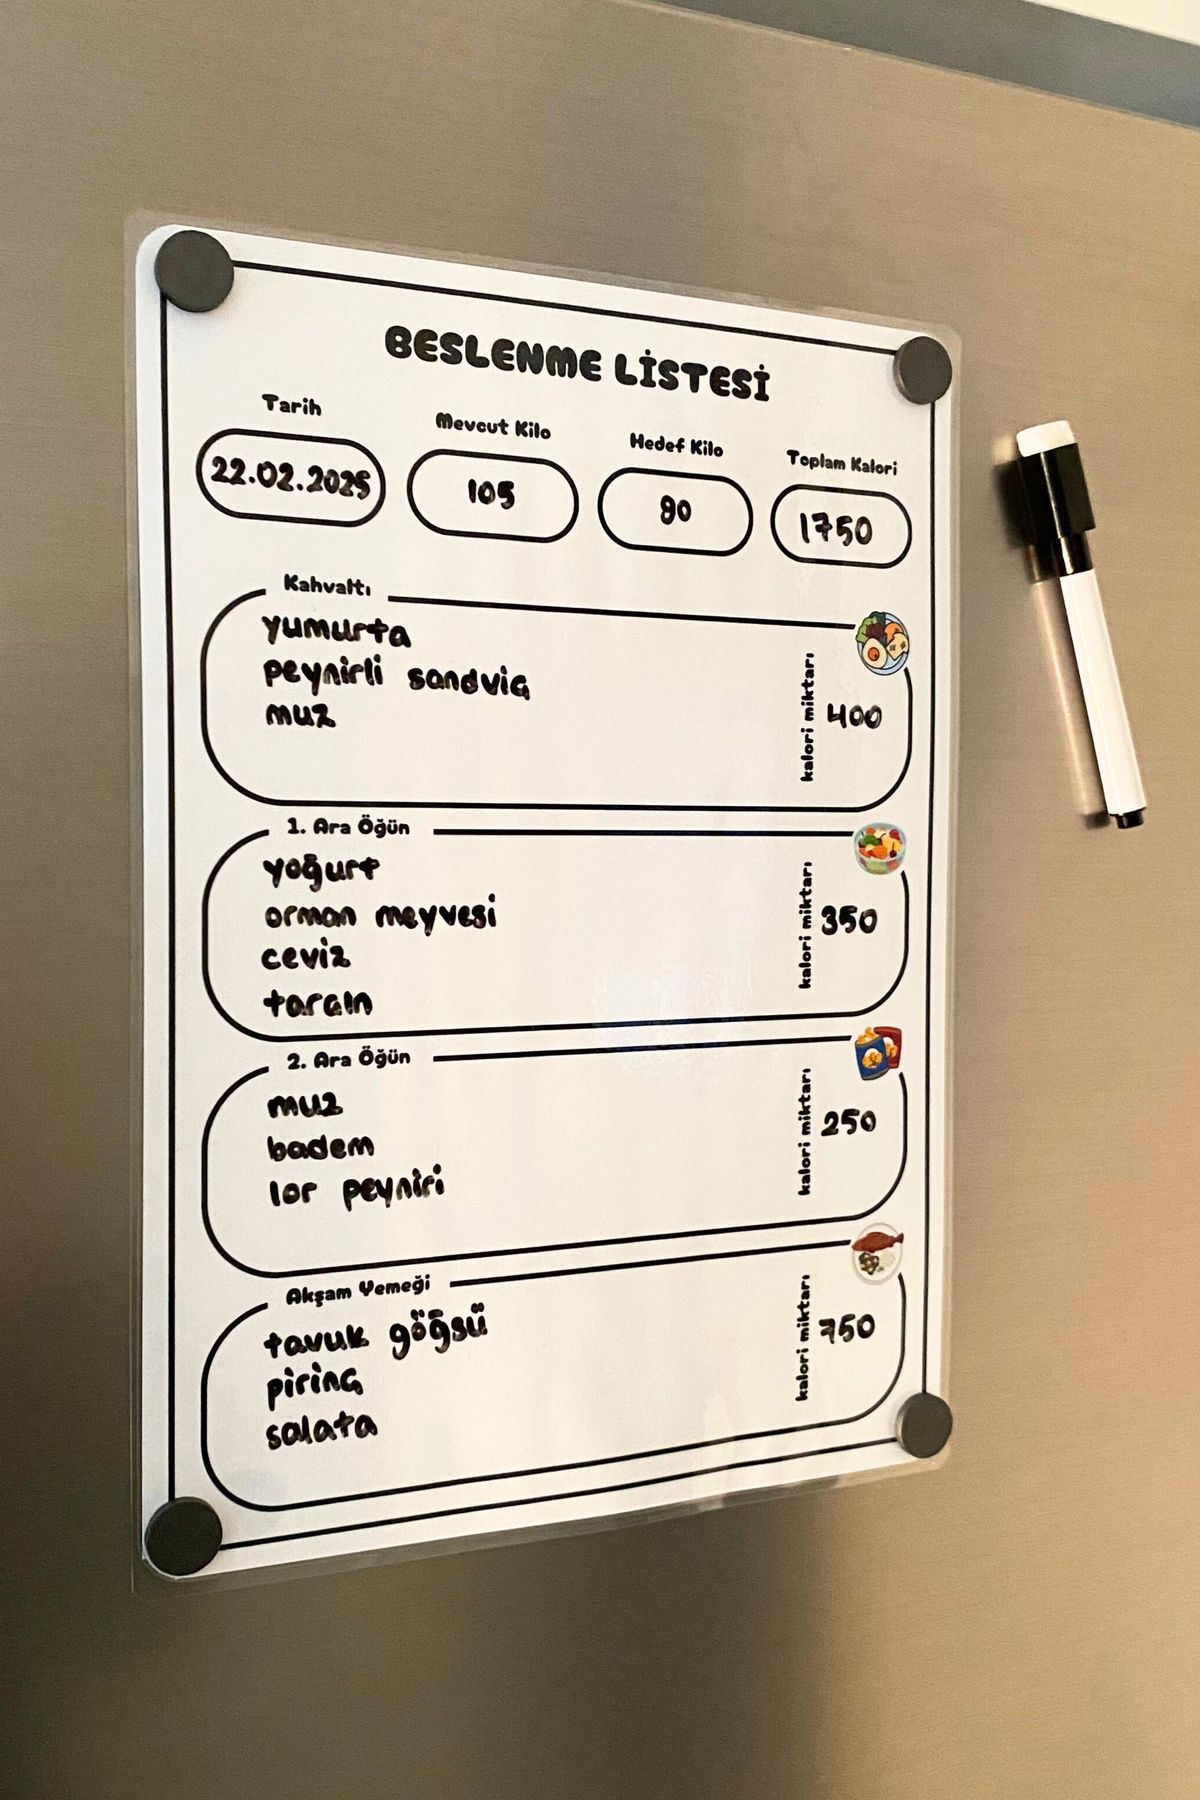 BESLENME LİSTESİ
Tarih
22.02.2025
Mevcut Kilo
105
Hedef Kilo
90
Toplam Kalori
1750
Kahvaltı
yumurta
peynirli sandviç
muz
kalori miktarı
400
1. Ara Öğün
yoğurt
orman meyvesi
ceviz
tarçın
kalori miktarı
350
2. Ara Öğün
muz
badem
lor peyniri
kalori miktarı
250
Akşam Yemeği
tavuk göğsü
pirinç
salata
kalori miktarı
750